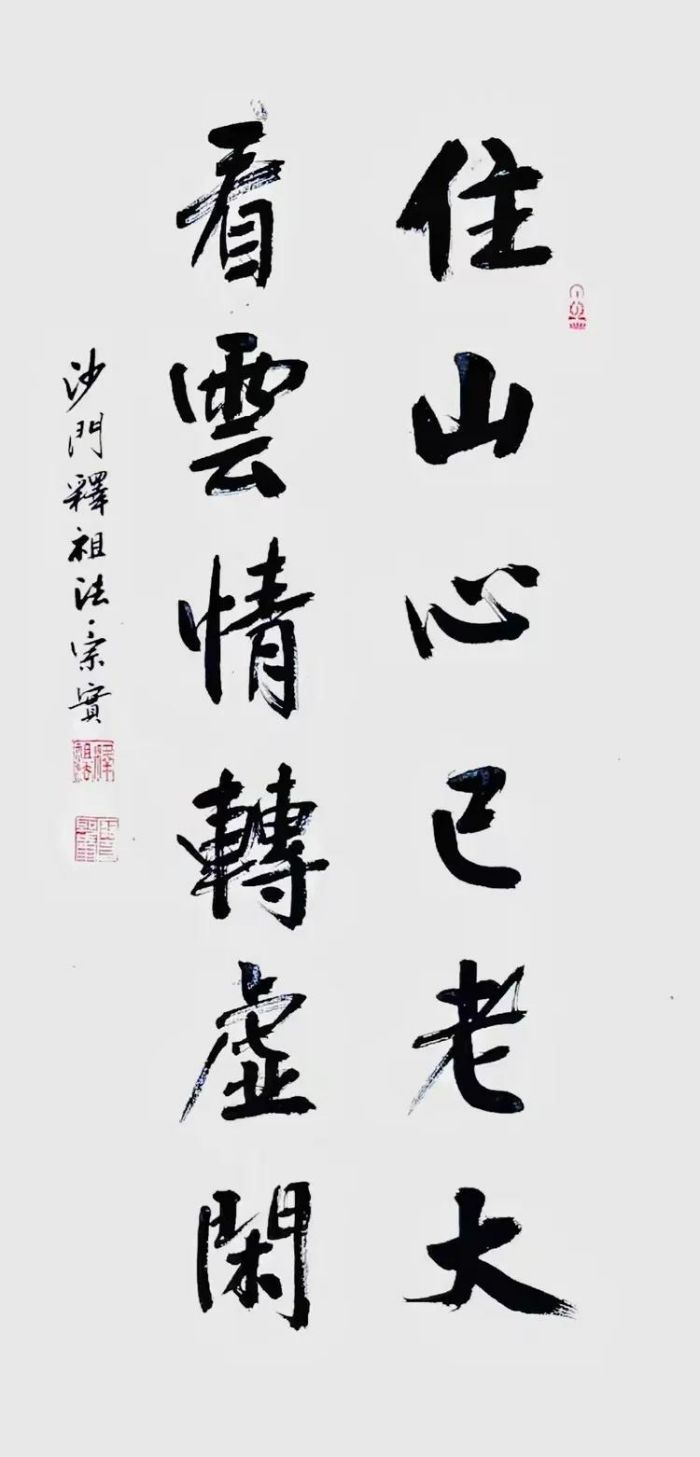 住山心已老大
看雲情轉虛閑
沙門釋祖法宗實